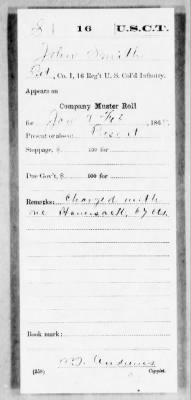 S 16 U.S.C.T.
John Smith
Pvt, Co. I, 16 Reg't U. S. Col'd Infantry.
Appears on
Company Muster Roll
for Jan & Feb, 186
Present or absent Present
Stoppage, $ 100 for
Due Gov't, $ 100 for
Remarks: Charged with
one Haversack, 67 cts.
Book mark:
Andrews
(358) Copyist.